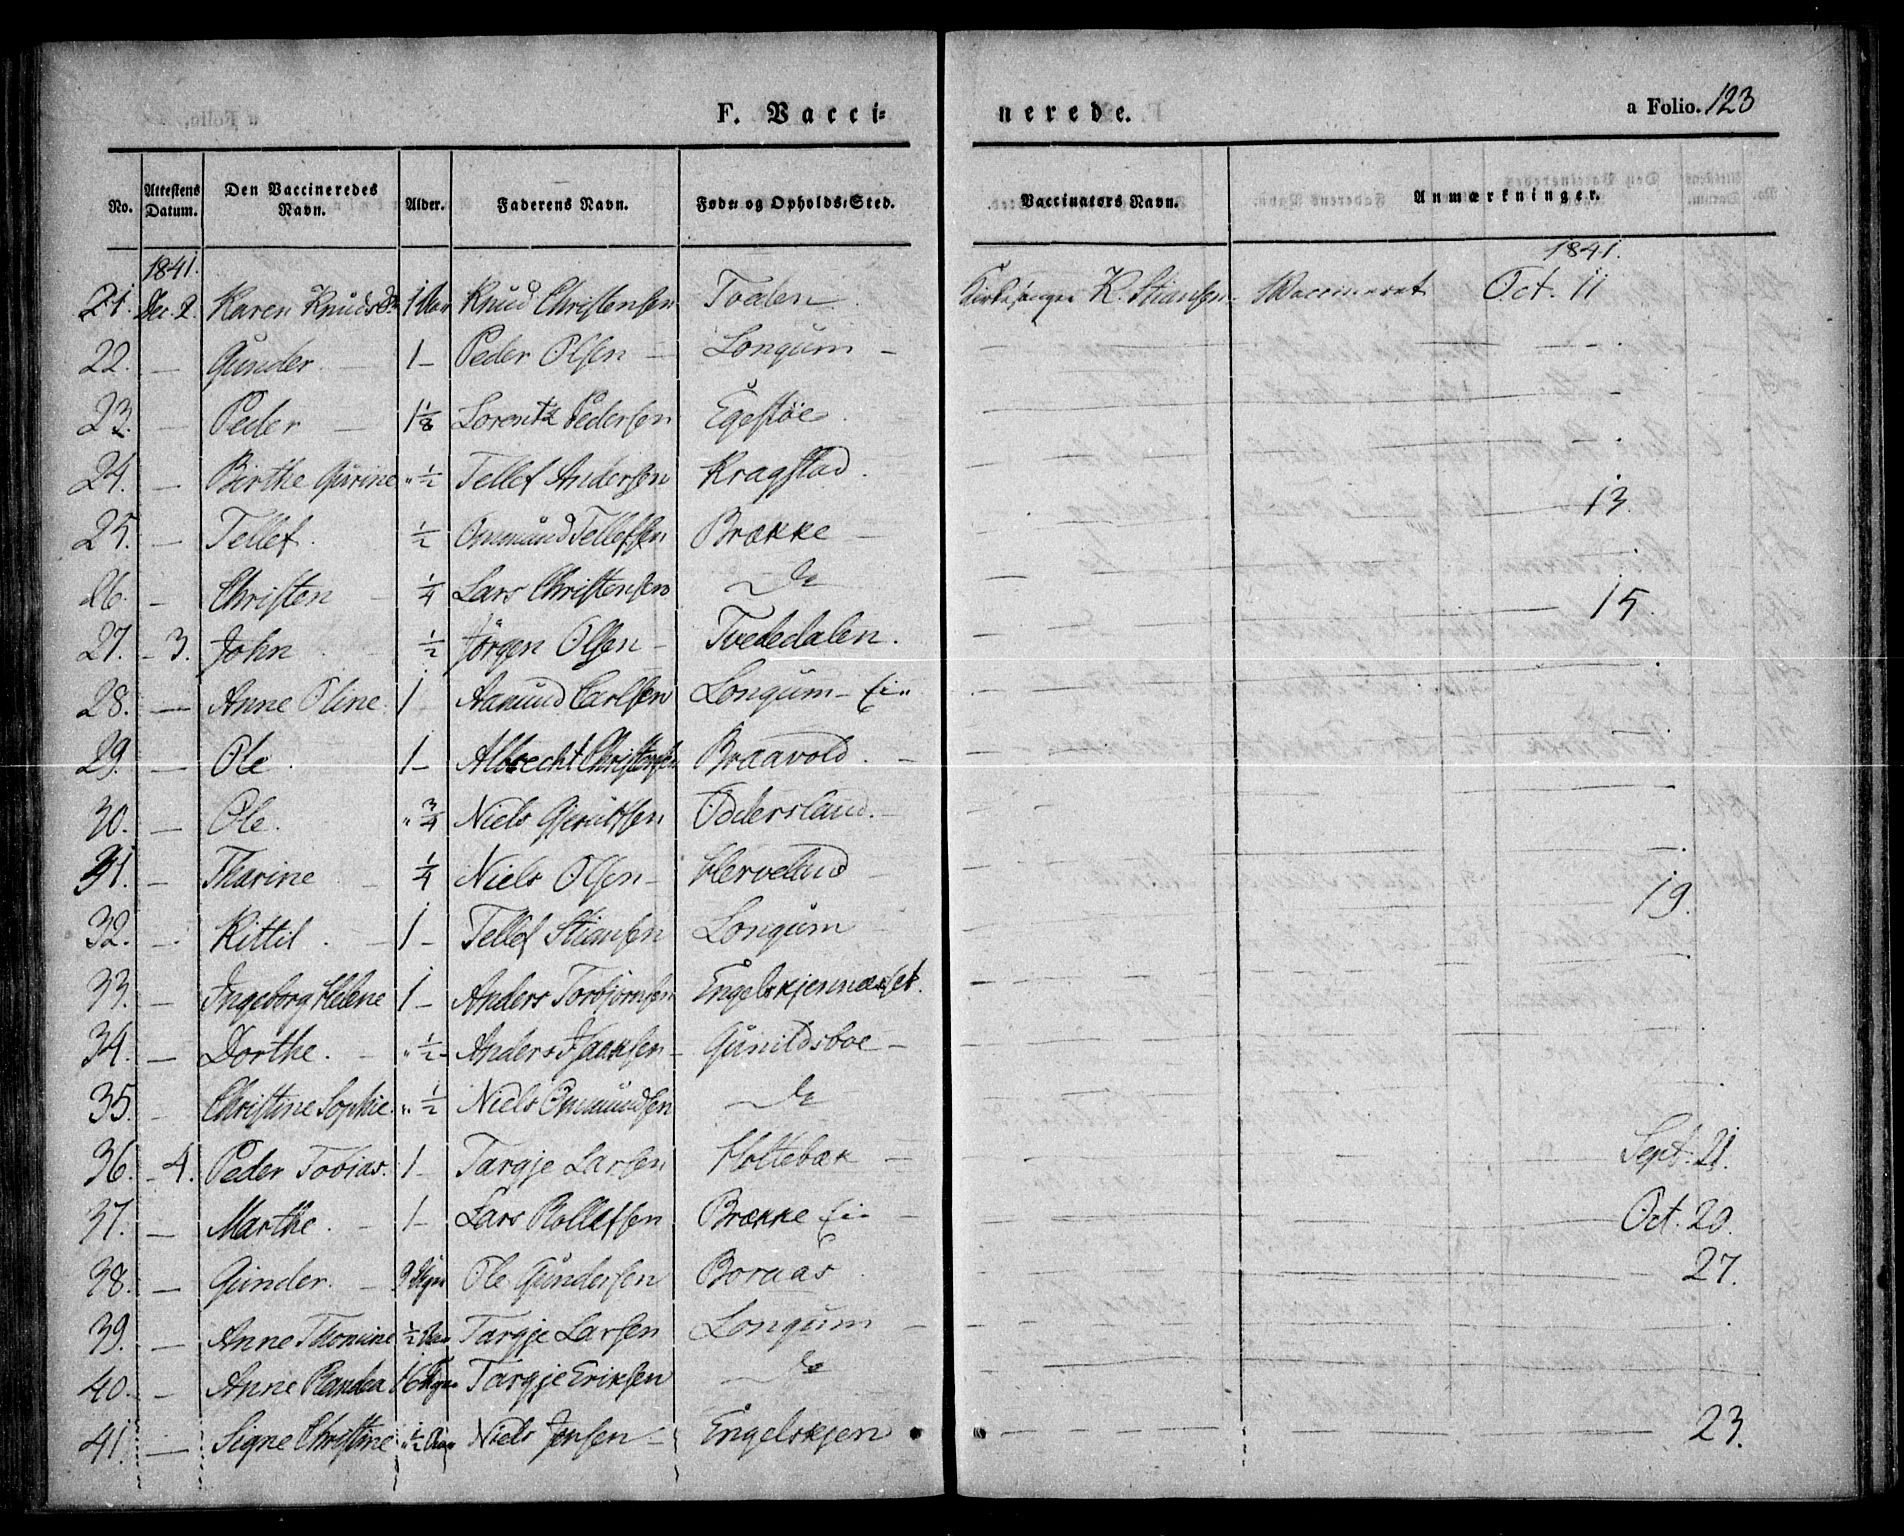 F. Vacci- nerede. a Folio. 123
No. Attestens Datum. Den Vaccineredes Navn. Alder. Faderens Navn. Føde- og Opholds-Sted. Vaccinators Navn. Anmærkninger.
1841. 1841.
21. Dec. 2. Karen Knudsdr 1 Aar Knud Christensen Tveden Kirkesanger K. Stiansen Vaccineret Oct. 11
22. — Gunder. — 1 — Peder Olsen — Longum —
23. — Peder — 1 1/8 Lorentz Pedersen Egestøe.
24. — Birthe Gurine " 1/2 Tellef Andersen Kragstad.
25. — Tellef. 1/2 Ommund Tellefsen Brække — 13.
26. — Christen — 1/4 Lars Christensen do
27. — 3. John 1/2 Jörgen Olsen — Tvededalen. 15.
28. — Anne Oline. 1 Aamund Carlsen Longum — Ei"
29. — Ole. 1 — Albrecht Christensen Braavold. —
30. — Ole. " 3/4 Niels Gjeruldsen Oddersland. —
31. — Tharine — 1/4 Niels Olsen — Herveland —
32. — Kittil. — 1 — Tellef Stiansen Longum 19.
33. — Ingeborg Helene 1 — Anders Torbjørnsen Engelskjernnæset.
34. — Dorthe. — " 1/2 — Anders Isaksen — Gunildsboe —
35. — Christine Sophie. " 1/2 Niels Ommundsen do
36. — 4. Peder Tobias. 1 — Targje Larsen Holtebæk — Sept. 21.
37. — Marthe. — 1 — Lars Rollefsen Brække Ei — Oct. 20.
38. — Gunder. — 9 Ole Gundersen Boraas. 27.
39. — Anne Thomine 1/2 Aar Targje Larsen Longum —
40. — Anne Randea 16 Targje Eriksen do
41. — Signe Christine " 1/2 Aar Niels Jensen — Engelskjen 23.